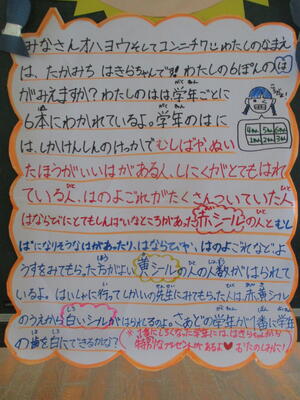 みなさんオハヨウそしてコンニチワ!!わたしのなまえ
は、たかみち はきらちゃんです!わたしの6ぽんのは
がみえますか?わたしのはは、学年ごとに
6本にわかれているよ。学年のはに
は、しかけんしんのけっかでむしばや、ぬい
たほうがいいはがある人、しにくがとてもはれ
ている人、はのよごれがたくさんついていた人
はならびにとてもしんぱいなところがあった赤シールの人とむし
ば"になりそうなはがあったり、はならびや、はのよごれなどで、よ
うすをみてもらったほうがよい黄シールの人の人数がはられて
いるよ。はいしゃに行ってしかいの先生にみてもらった人は、赤、黄シール
のうえから白いシールがはられてるのよ。さあどの学年が1番に学年
の歯を白にできるかな?
※1番に白くなった学年には、はきらちゃんから
特別なプレゼントがあるよ♥おたのしみに!
4年 5年 6年
1年 2年 3年